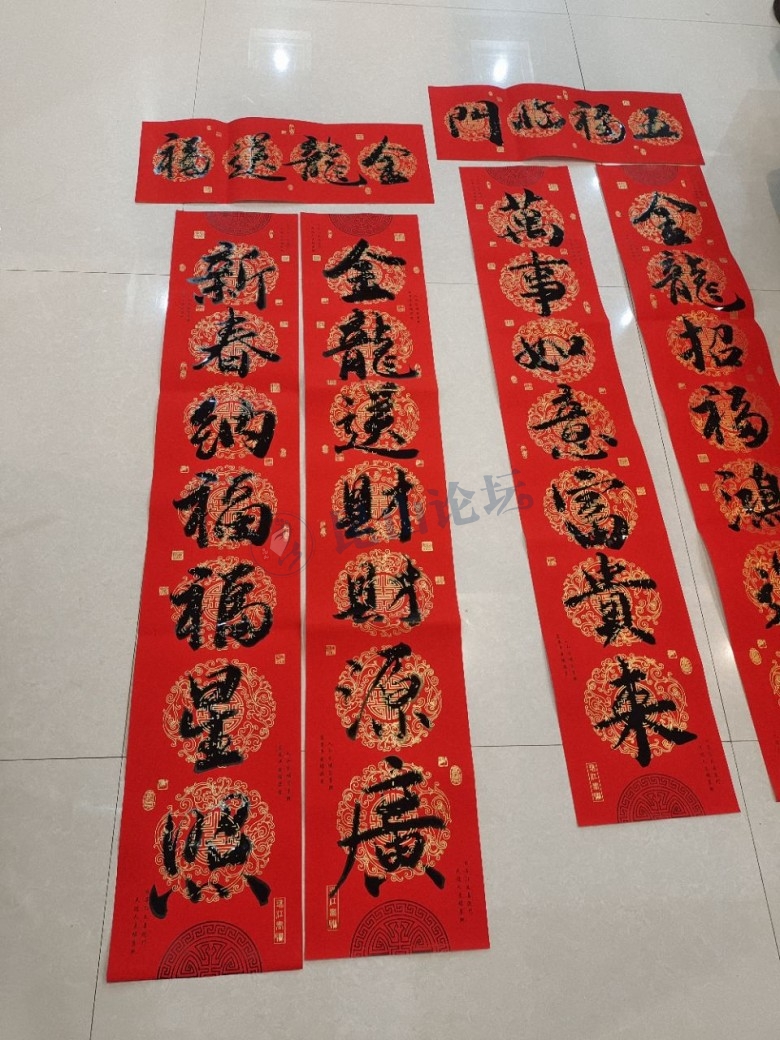 金龍送福
金龍送財財源廣
新春纳福福星照
五福临門
金龍招福鴻
萬事如意富貴来
昆山论坛